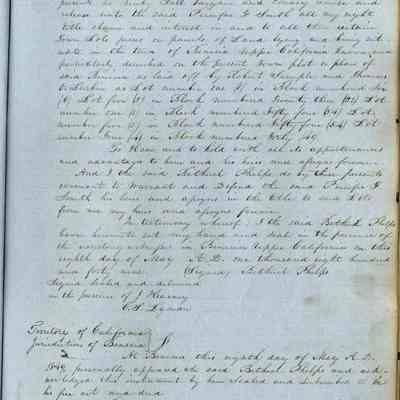 presents do Grant, Sell bargain and Convey remise and
release unto the said Persifor F Smith all my right
title claim and interest in and to all those certain
Town Lots piece or parcels of Land lying and being sit-
uate in the Town of Benicia Upper California known and
particularly described on the present Town plot or plan of
said Benicia as laid off by Robert Semple and Thomas
O Larkin as Lot number one (1) in Block numbered Six
(6) Lot five (5) in Block numbered Twenty four (24) Lot
number one (1) in Block numbered Fifty four (54) Lot
number five (5) in Block numbered fifty four (54) Lot
number four (4) in Block numbered Forty (40)
To Have and to hold with all its appurtenances
and advantages to him and his heirs and assigns forever.
And I the said Bethuel Phelps do by these presents
covenant to Warrant and Defend the said Persifor F
Smith his heirs and assigns in the title to said Lots
from me my heirs and assigns forever.
In testimony whereof I the said Bethuel Phelps
have hereunto set my hand and seal in the presence of
the subscribing witnesses in Benicia Upper California on this
eighth day of May A.D. one thousand eight hundred
and forty nine. (Signed) Bethuel Phelps
Signed sealed and delivered
in the presence of J Kearney
C. S. Lyman
Territory of California
Jurisdiction of Benicia
At Benicia this eighth day of May A.D.
1849, personally appeared the said Bethuel Phelps and ack-
nowledged this instrument by him Sealed and Subscribed to be
his free act and deed